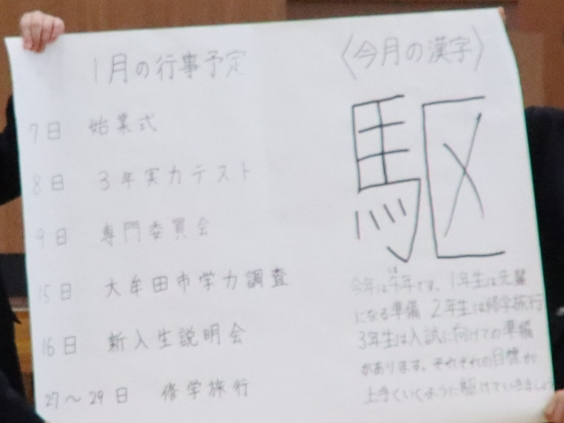 1月の行事予定
7日 始業式
8日 3年実力テスト
9日 専門委員会
15日 大牟田市学力調査
16日 新入生説明会
27〜29日 修学旅行
〈今月の漢字〉
駆
今年は午年です。1年生は先輩
になる準備 2年生は修学旅行
3年生は入試に向けての準備
があります。それぞれの目標が
上手くいくように駆けていきましょう